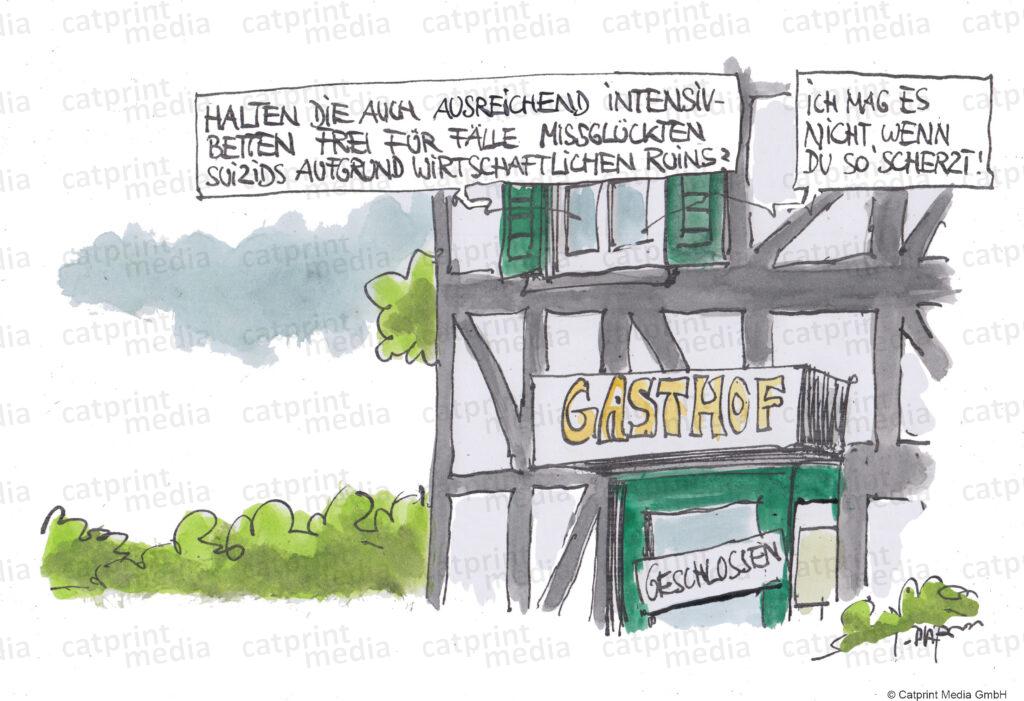 HALTEN DIE AUCH AUSREICHEND INTENSIV-
BETTEN FREI FÜR FÄLLE MISSGLÜCKTEN
SUIZIDS AUFGRUND WIRTSCHAFTLICHEN RUINS?
ICH MAG ES
NICHT, WENN
DU SO SCHERZT!
GASTHOF
GESCHLOSSEN
catprint media
© Catprint Media GmbH